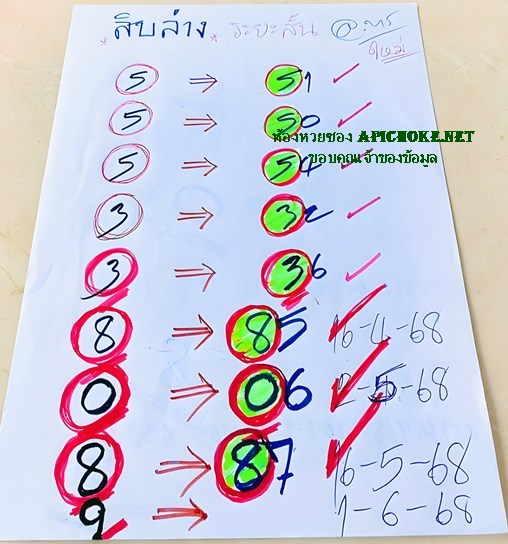 สิบล่าง ระยะสั้น
ใหม่
5 ⇒ 51 ✓
5 ⇒ 50 ✓
ห้องหวยซอง APICHOKE.NET
ขอบคุณเจ้าของข้อมูล
5 ⇒ 54 ✓
3 ⇒ 32 ✓
3 ⇒ 36 ✓
8 ⇒ 85 ✓ 16-4-68
0 ⇒ 06 ✓ 2-5-68
8 ⇒ 87 ✓ 16-5-68
9 ⇒ 1-6-68